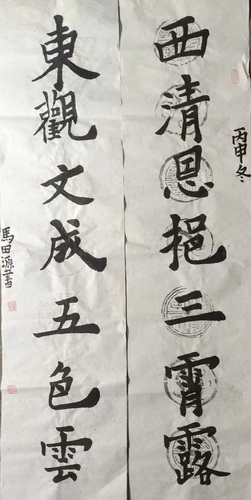 丙申冬
西清恩挹三霄露
東觀文成五色雲
馬田源書